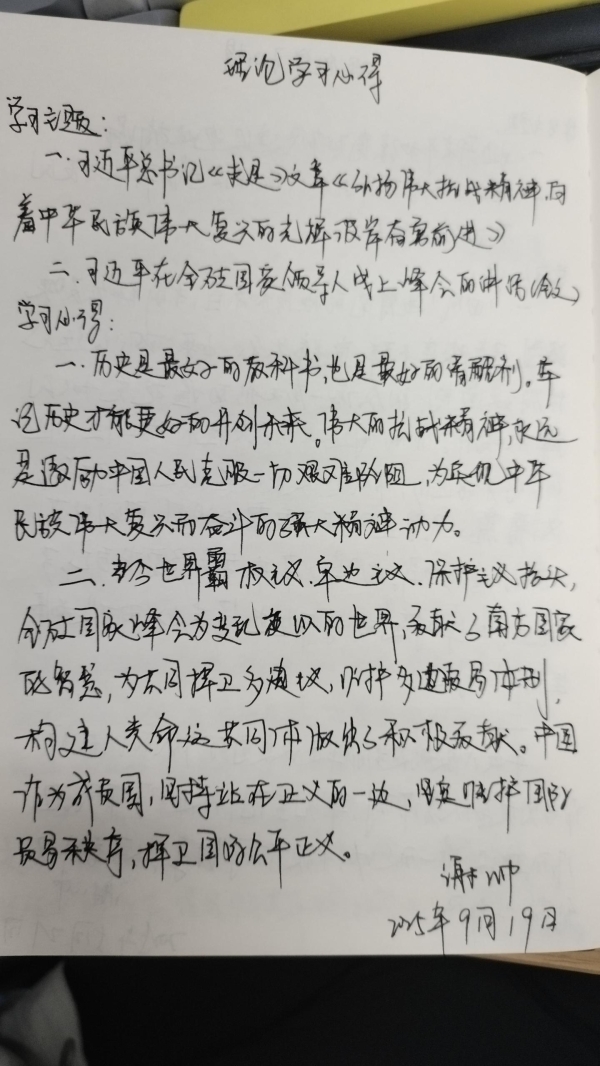 理论学习心得
学习主题:
一.习近平总书记《求是》文章《弘扬伟大抗战精神,向
着中华民族伟大复兴的光辉彼岸奋勇前进》
二.习近平在金砖国家领导人线上峰会的讲话(全文)
学习心得:
一.历史是最好的教科书,也是最好的清醒剂。牢
记历史才能更好的开创未来。伟大的抗战精神,永远
是激励中国人民克服一切艰难险阻,为实现中华
民族伟大复兴而奋斗的强大精神动力。
二.当今世界霸权主义.单边主义.保护主义抬头,
金砖国家峰会为变乱交织的世界,贡献了南方国家
的智慧,为共同捍卫多边主义,维护多边贸易体制,
构建人类命运共同体做出了积极贡献。中国
作为成员国,坚持站在正义的一边,坚定维护国际
贸易秩序,捍卫国际公平正义。
谢帅
2025年9月19日